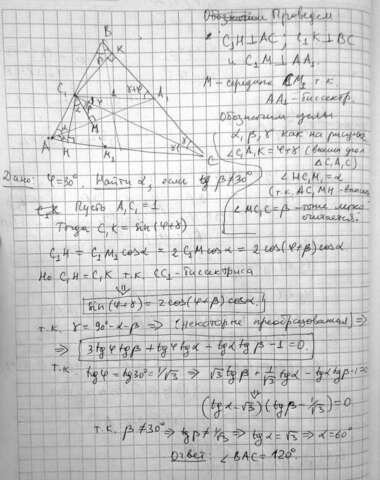 Проведем
C₁H⊥AC; C₁K⊥BC
и C₁M⊥AA₁.
M - середина C₁M₁ т.к.
AA₁ - биссектр.
Обозначим углы
α, β, γ как на рисунке
∠C₁A₁K = φ+γ (внешн. угол
△CA₁C₁)
∠HC₁M₁ = α
(т.к. AC₁MH - впис.)
∠MC₁C = β - тоже легко
B
K
C₁
φ+γ
A₁
β
φ
M
α
A
H
M₁
γ
C
Дано: φ=30°. Найти α, если tg β≠30°
Пусть A₁C₁=1.
Тогда C₁K = sin(φ+γ)
C₁H = C₁M₁cosα = 2C₁M cosα = 2cos(φ+β)cosα
Но C₁H=C₁K т.к. CC₁ - биссектриса
⇓
sin(φ+γ) = 2cos(φ+β)cosα.
т.к. γ = 90°-α-β ⇒ (некоторые преобразования) ⇒
⇒ 3tgφ tgβ + tgφ tgα - tgα tgβ - 1 = 0.
т.к. tgφ = tg30° = 1/√3 ⇒ √3 tgβ + 1/√3 tgα - tgα tgβ - 1 = 0
⇓
(tgα-√3)(tgβ-1/√3)=0
т.к. β≠30° ⇒ tgβ≠1/√3 ⇒ tgα=√3 ⇒ α=60°
Ответ: ∠BAC=120°.